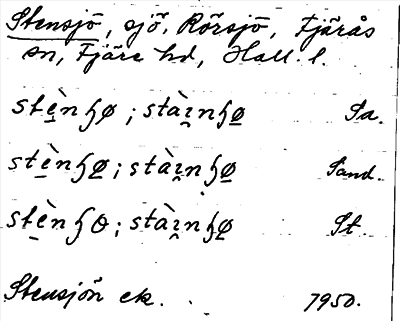 Stensjö, sjö, Rörsjö, Fjärås
sn, Fjäre hd, Hall. l.
stè̱nɧø ; stài̯nɧø̱ Sa.
stè̱nɧø̱ ; stài̯nɧø̱ Sand.
stè̱nɧo ; stài̯nɧø̱ St.
Stensjön ek. 1950.